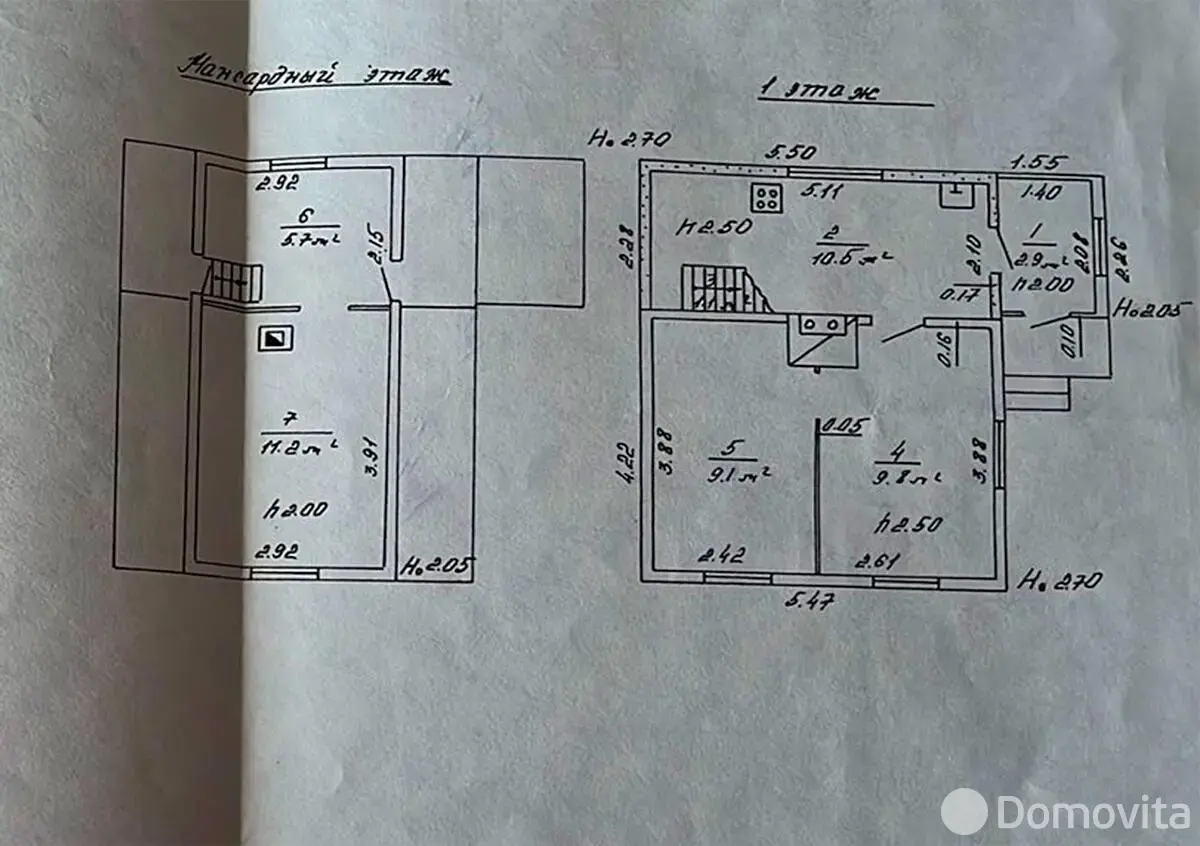 Мансардный этаж
1 этаж
Н. 2.70
5.50
1.55
2.92
5.11
1.40
6
5.7 м²
2.15
h2.50
2.28
2
10.6 м²
2.10
1
2.9 м²
2.08
2.26
h2.00
0.17
Н. 2.05
0.16
0.10
7
11.2 м²
3.91
h2.00
2.92
Н. 2.05
0.05
4.22
3.88
5
9.1 м²
4
9.8 м²
3.88
h2.50
2.42
2.61
Н. 2.70
5.47
Domovita